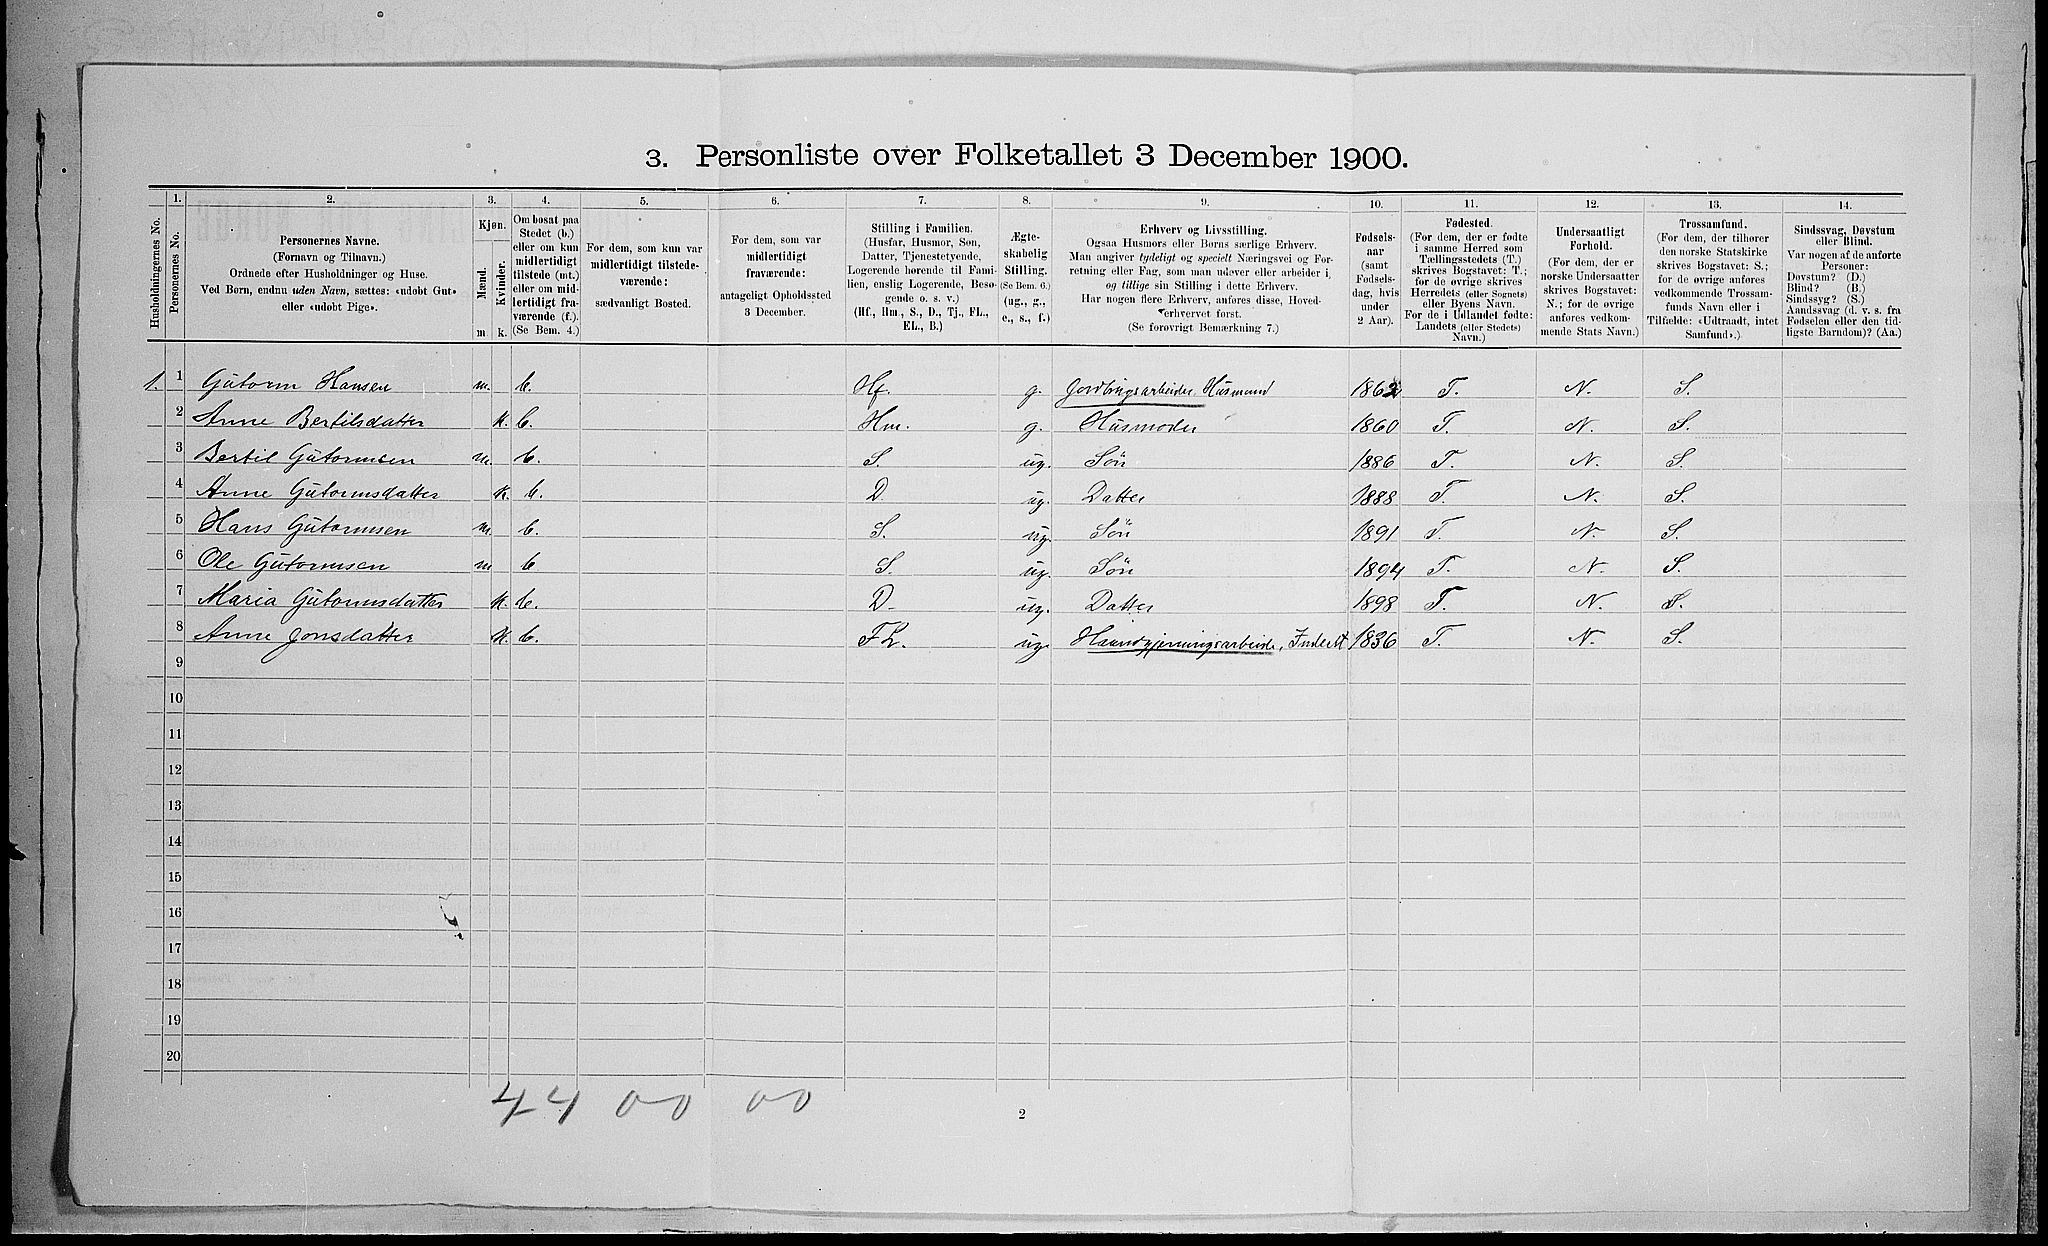 3. Personliste over Folketallet 3 December 1900.
1. 2. 3. 4. 5. 6. 7. 8. 9. 10. 11. 12. 13. 14.
Husholdningernes No.
Personernes No.
Personernes Navne.
(Fornavn og Tilnavn.)
Ordnede efter Husholdninger og Huse.
Ved Børn, endnu uden Navn, sættes: «udøbt Gut»
eller «udøbt Pige».
Kjøn.
Mænd.
Kvinder.
m. k.
Om bosat paa
Stedet (b.)
eller om kun
midlertidigt
tilstede (mt.)
eller om mid-
lertidigt fra-
værende (f.).
(Se Bem. 4.)
For dem, som kun var
midlertidigt tilstede-
værende:
sædvanligt Bosted.
For dem, som var
midlertidigt
fraværende:
antageligt Opholdssted
3 December.
Stilling i Familien.
(Husfar, Husmor, Søn,
Datter, Tjenestetyende,
Logerende hørende til Fami-
lien, enslig Logerende, Besø-
gende o. s. v.)
(Hf., Hm., S., D., Tj., FL.,
EL., B.)
Ægte-
skabelig
Stilling.
(Se Bem. 6.)
(ug., g.,
e., s., f.)
Erhverv og Livsstilling.
Ogsaa Husmors eller Børns særlige Erhverv.
Man angiver tydeligt og specielt Næringsvei og For-
retning eller Fag, som man udøver eller arbeider i,
og tillige sin Stilling i dette Erhverv.
Har nogen flere Erhverv, anføres disse, Hoved-
erhvervet først.
(Se forøvrigt Bemærkning 7.)
Fødsels-
aar
(samt
Fødsels-
dag, hvis
under
2 Aar).
Fødested.
(For dem, der er fødte
i samme Herred som
Tællingsstedets (T.)
skrives Bogstavet: T.;
for de øvrige skrives
Herredets (eller Sognets)
eller Byens Navn.
For de i Udlandet fødte:
Landets (eller Stedets)
Navn.)
Undersaatligt
Forhold.
(For dem, der er
norske Undersaatter
skrives Bogstavet:
N.; for de øvrige
anføres vedkom-
mende Stats Navn.)
Trossamfund.
(For dem, der tilhører
den norske Statskirke
skrives Bogstavet: S.;
for de øvrige anføres
vedkommende Trossam-
funds Navn eller i
Tilfælde: «Udtraadt, intet
Samfund».)
Sindssvag, Døvstum
eller Blind.
Var nogen af de anførte
Personer:
Døvstum? (D.)
Blind? (B.)
Sindssyg? (S.)
Aandssvag (d. v. s. fra
Fødselen eller den tid-
ligste Barndom)? (Aa.)
1. 1 Gutorm Hansen m. b. Hf. g. Jordbrugsarbeider, Husmand 1862 T. N. S.
2 Anne Bertilsdatter k. b. Hm. g. Husmoder 1860 T. N. S.
3 Bertil Gutormsen m. b. S. ug. Søn 1886 T. N. S.
4 Anne Gutormsdatter k. b. D. ug. Datter 1888 T. N. S.
5 Hans Gutormsen m. b. S. ug. Søn 1891 T. N. S.
6 Ole Gutormsen m b S. ug. Søn 1894 T. N. S.
7 Maria Gutormsdatter k. b. D. ug. Datter 1898 T. N. S.
8 Anne Jonsdatter k. b. FL. ug. Haandgjerningsarbeide, Inderst 1836 T. N. S.
9
10
11
12
13
14
15
16
17
18
19
20
44 00 00
2